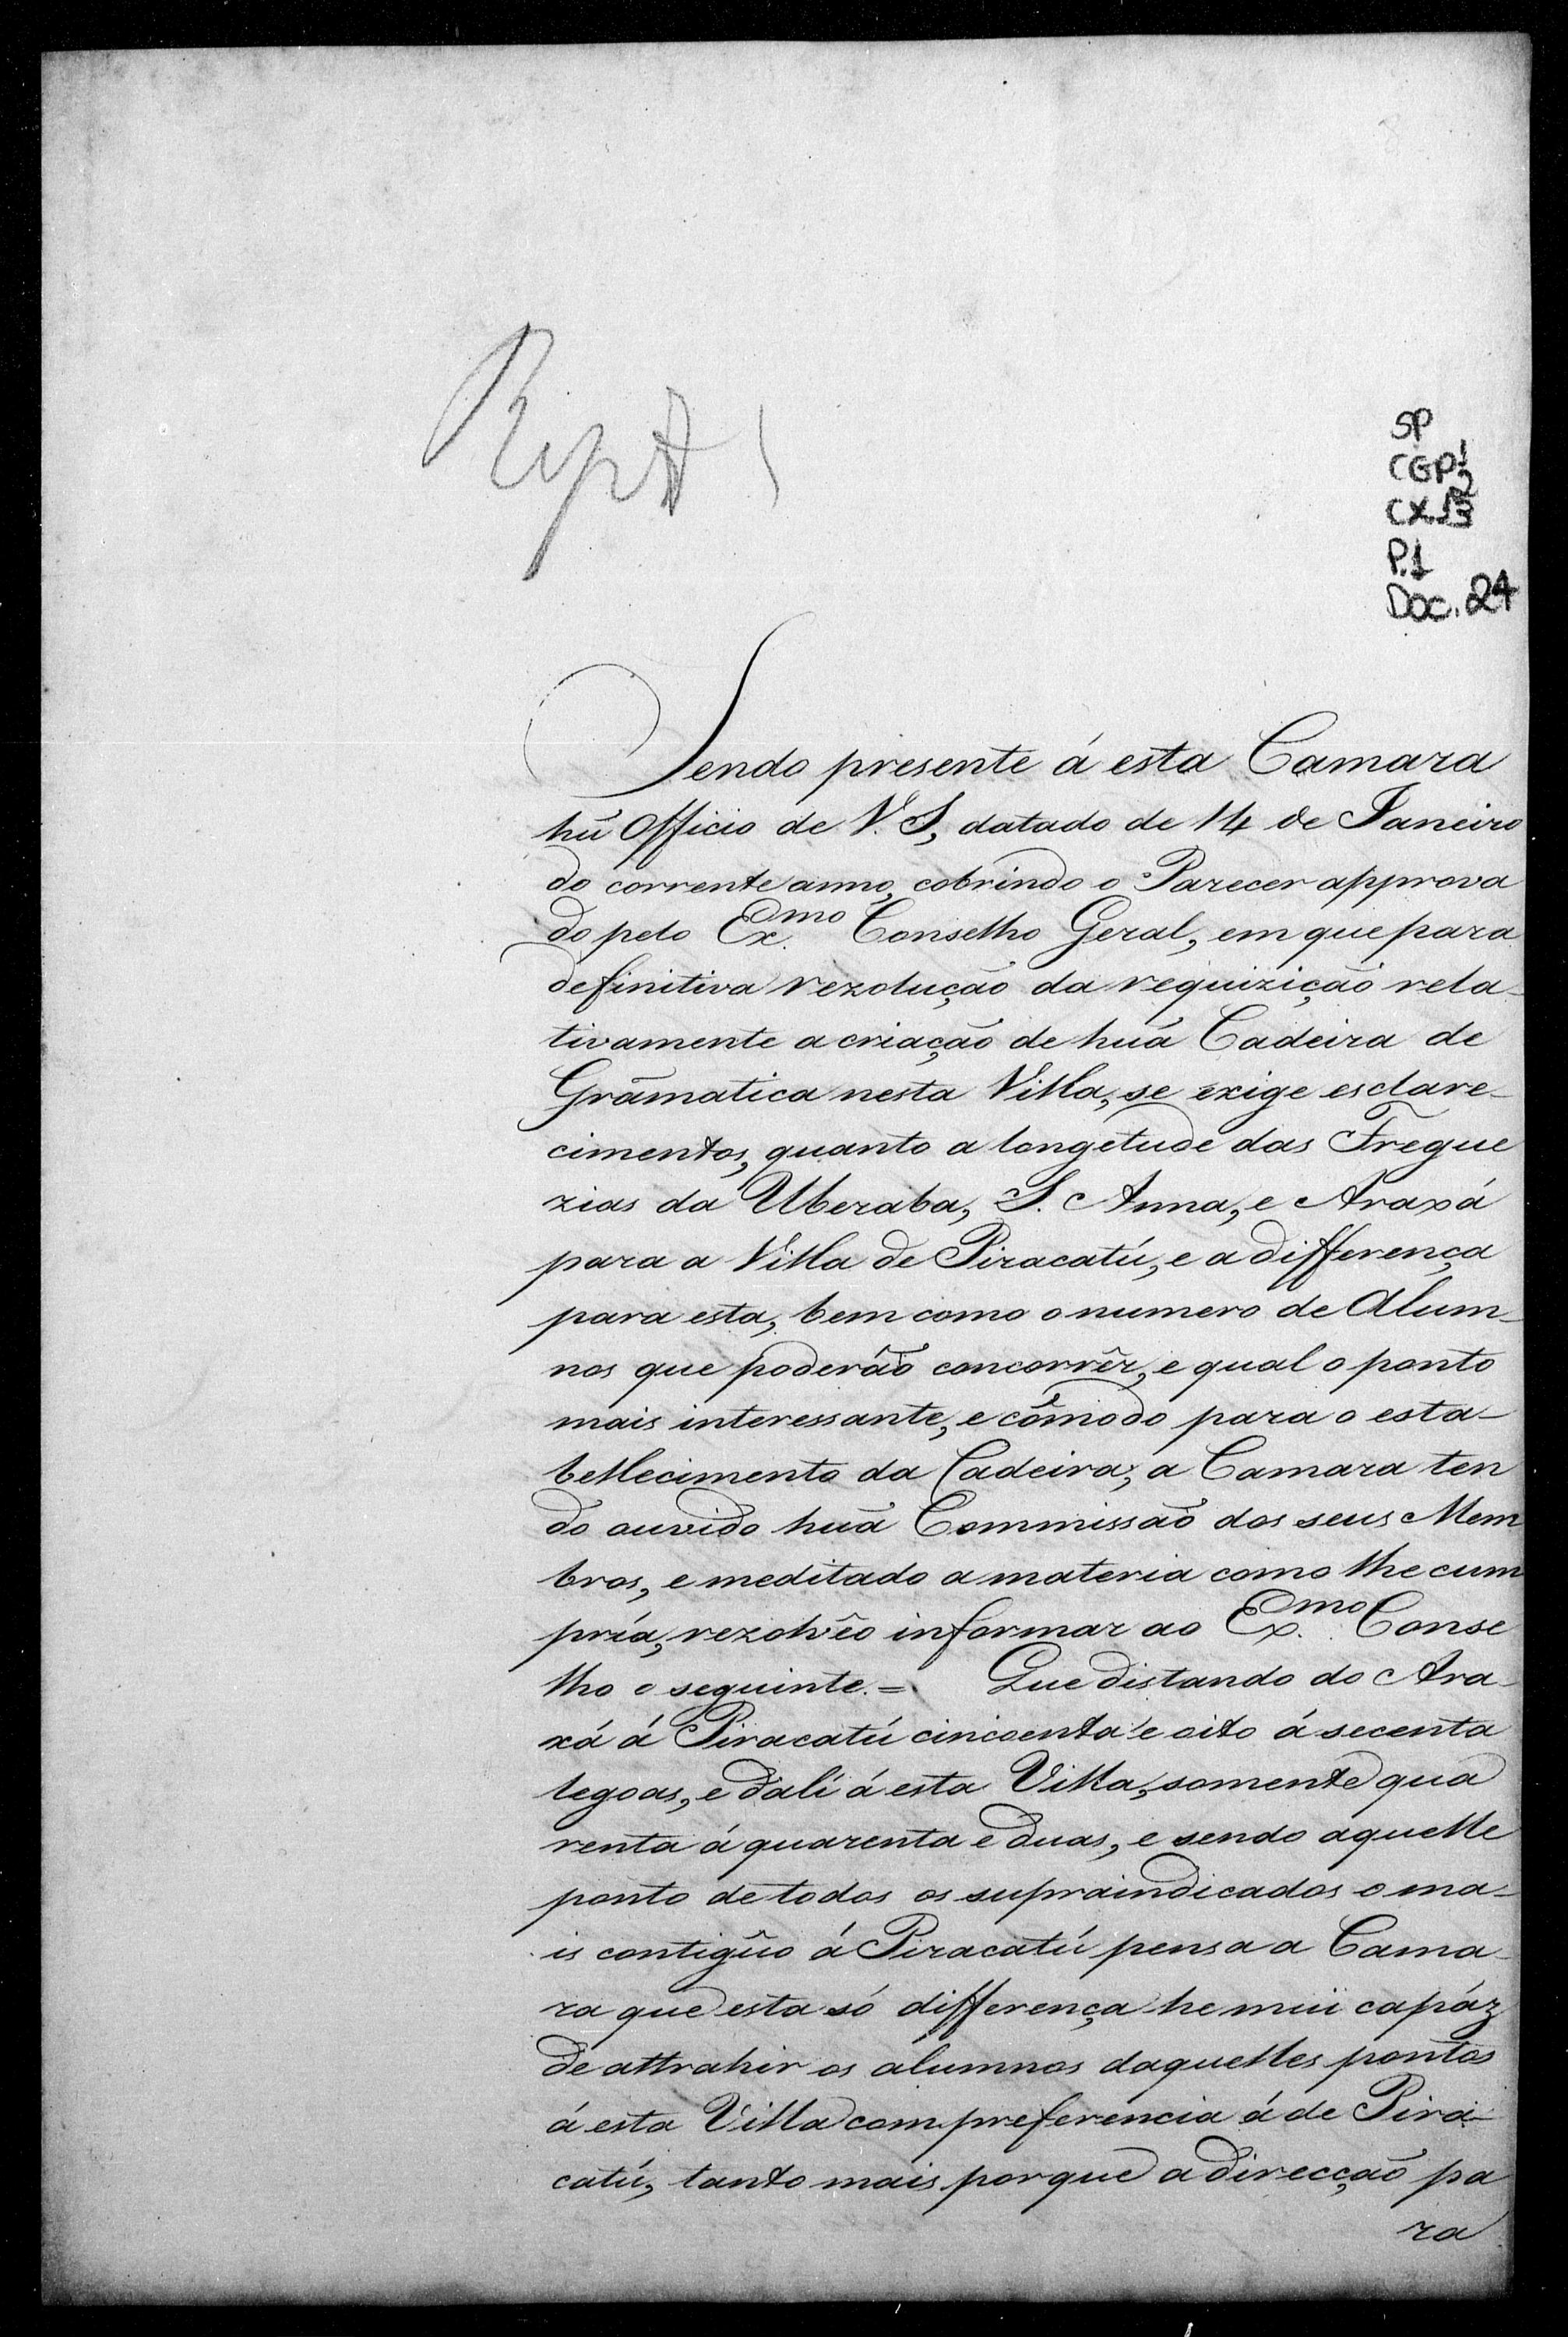 SP
CGP1
CX.
P.1
Doc. 24
Sendo presente á esta Camara
hũ Officio de V. S., datado de 14 de Janeiro
do corrente anno, cobrindo o Parecer approva
do pelo Ex.mo Conselho Geral, em que para
definitiva rezolução da requizição rela-
tivamente a criação de huã Cadeira de
Grãmatica nesta Villa, se exige esclare-
cimentos, quanto a longetude das Fregue
zias da Uberaba, S. Anna, e Araxá
para a Villa de Piracatú, e a differença
para esta, bem como o numero de Alum-
nos que poderão concorrêr, e qual o ponto
mais interessante, e cômodo para o esta-
bellecimento da Cadeira; a Camara ten
do ouvido huã Commissão dos seus Mem
bros, e meditado a materia como lhe cum
pría, rezolvêo informar ao Ex.mo Conse
lho o seguinte. = Que distando do Ara-
xá á Piracatú cincoenta e oito á secenta
legoas, e dalí á esta Villa, somente qua
renta á quarenta e duas, e sendo aquelle
ponto de todos os supraindicados o ma-
is contigûo á Piracatú pensa a Cama-
ra que esta só differença he mui capáz
de attrahir os alumnos daquelles pontos
á esta Villa com preferencia á de Pira-
catú, tanto mais porque a direcção pa
ra